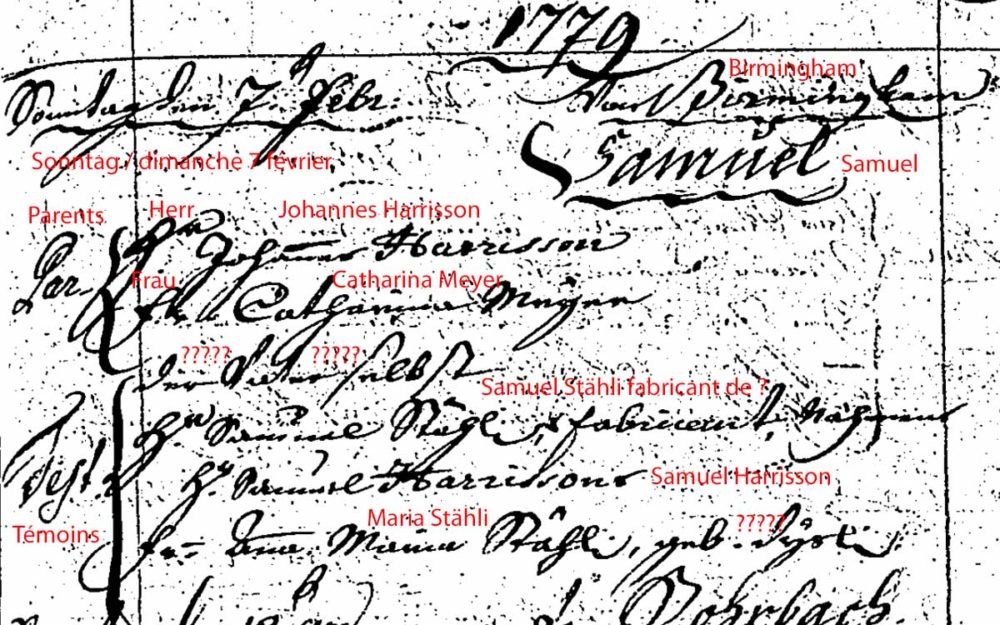 1779
Birmingham
Sonntag den 7. Febr: Birmingham
Sonntag / dimanche 7 février
Samuel Samuel
Parents Herr Johannes Harrisson
Par. Hr Johannes Harrisson
Frau Catharina Meyer
Catharina Meyer
????? ?????
der Vater selbst
Samuel Stähli fabricant de ?
Hr Samuel Stähli, fabricant,
Test. Hr Samuel Harrisson Samuel Harrisson
Témoins Maria Stähli ?????
Maria Stähli, geb.
Rohrbach.